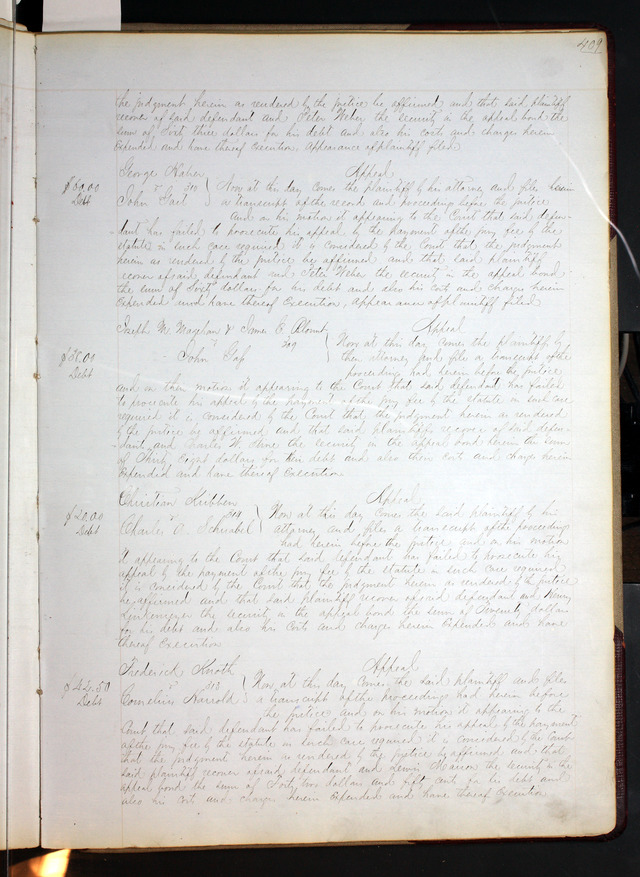 409
the judgment herein as rendered by the justice be affirmed and that said plaintiff
recover of said defendant and Peter Weber the security in the appeal bond the
sum of Sixty three dollars for his debt and also his costs and charges herein
expended and have thereof execution, appearance of plaintiff filed
George Appeal
$60.00 Now at this day comes the plaintiff by his attorney and files herein
Debt John a transcript of the record and proceeding before the justice
and on his motion it appearing to the Court that said defen-
dant has failed to prosecute his appeal by the payment of the jury fee by the
statute in such case required it is considered by the Court that the judgment
herein as rendered by the justice be affirmed and that said plaintiff
recover of said defendant and Peter Weber the security in the appeal bond
the sum of Sixty dollars for his debt and also his costs and charges herein
expended and have thereof execution, appearance of plaintiff filed
Joseph M. & James C. Blount Appeal
vs Now at this day comes the plaintiffs by
$ John their attorney and file a transcript of the
Debt proceeding had herein before the justice
and on their motion it appearing to the Court that said defendant has failed
to prosecute his appeal by the payment of the jury fee by the statute in such case
required it is considered by the Court that the judgment herein as rendered
by the justice be affirmed and that said plaintiffs recover of said defen-
dant and Charles W. the security in the appeal bond herein the sum
of Thirty Eight dollars for their debt and also their costs and charges herein
expended and have thereof execution
Christian Appeal
Now at this day comes the said plaintiff by his
Debt Charles A. Schnabel attorney and files a transcript of the proceeding
had herein before the justice and on his motion
it appearing to the Court that said defendant has failed to prosecute his
appeal by the payment of the jury fee by the statute in such case required
it is considered by the Court that the judgment herein as rendered by the justice
be affirmed and that said plaintiff recover of said defendant and Henry
the security in the appeal bond the sum of Seventy dollars
for his debt and also his costs and charges herein expended and have
thereof execution
Frederick Appeal
$42.50 Now at this day comes the said plaintiff and files
Debt Cornelius a transcript of the proceeding had herein before
the justice and on his motion it appearing to the
Court that said defendant has failed to prosecute his appeal by the payment
of the jury fee by the statute in such case required it is considered by the Court
that the judgment herein as rendered by the justice be affirmed and that
said plaintiff recover of said defendant and the security in the
appeal bond the sum of Forty two dollars and fifty cents for his debt and
also his costs and charges herein expended and have thereof execution